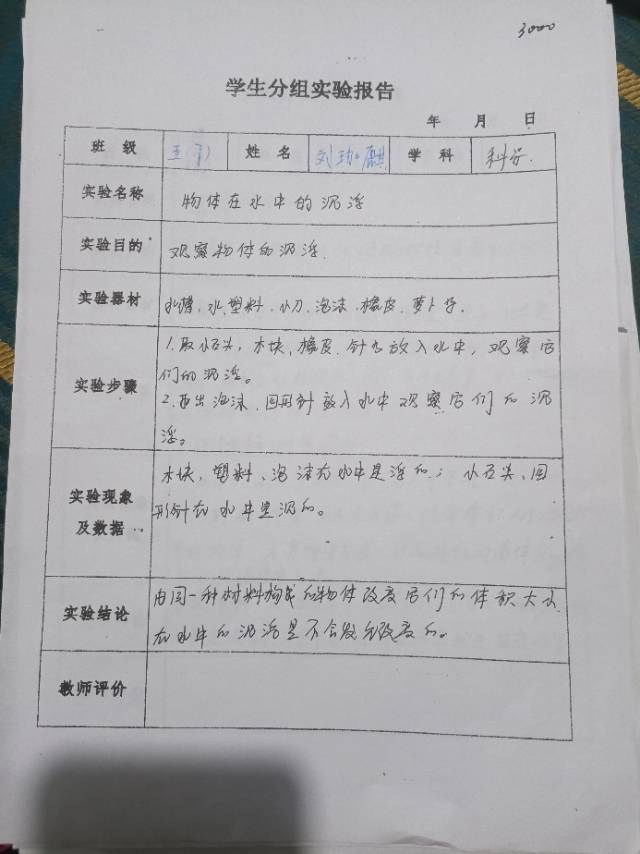 3000
学生分组实验报告
年 月 日
班级 五 姓名 刘 麒 学科 科学
实验名称 物体在水中的沉浮
实验目的 观察物体的沉浮
实验器材 水槽、水、塑料、小刀、泡沫、橡皮、萝卜等.
1.取小石头,木块,橡皮、针 放入水中,观察它
实验步骤 们的沉浮。
2. 出泡沫、回形针放入水中观察它们的沉
浮。
实验现象 木块,塑料、泡沫在水中是浮的;小石头、回
及数据 形针在水中是沉的。
实验结论 由同一种材料构成的物体改变它们的体积大小
在水中的沉浮是不会发生改变的。
教师评价